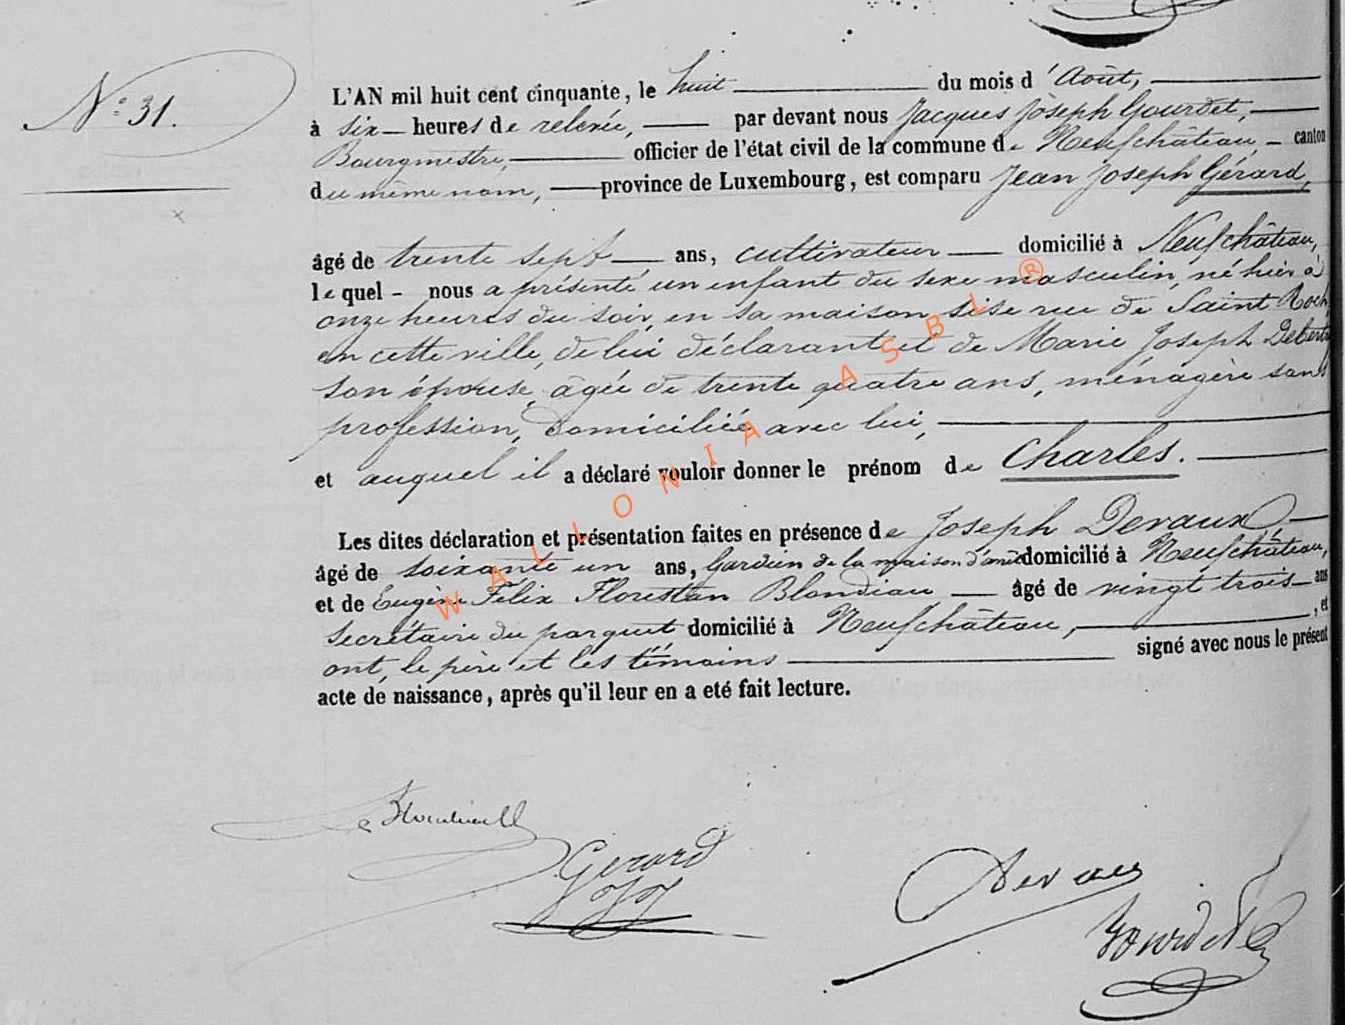 N° 31.
L'AN mil huit cent cinquante, le huit du mois d'Août,
à six heures de relevée, par devant nous Jacques Joseph Gourdet,
Bourgmestre, officier de l'état civil de la commune de Neufchâteau, canton
du même nom, province de Luxembourg, est comparu Jean Joseph Gérard,
âgé de trente sept ans, cultivateur domicilié à Neufchâteau,
lequel nous a présenté un enfant du sexe masculin, né hier à
onze heures du soir, en sa maison sise rue de Saint Roch
en cette ville, de lui déclarant et de Marie Joseph
son épouse, âgée de trente quatre ans, ménagère sans
profession, domiciliée avec lui,
et auquel il a déclaré vouloir donner le prénom de Charles.
Les dites déclaration et présentation faites en présence de Joseph Devaux,
âgé de soixante un ans, Gardien de la maison d'arrêt domicilié à Neufchâteau,
et de Eugène Félix Florestan Blondiau âgé de vingt trois ans
Secrétaire du parquet domicilié à Neufchâteau, , et
ont, le père et les témoins signé avec nous le présent
acte de naissance, après qu'il leur en a eté fait lecture.
WALLONIA ASBL ®
Gerard
JJ
Devaux
Gourdet